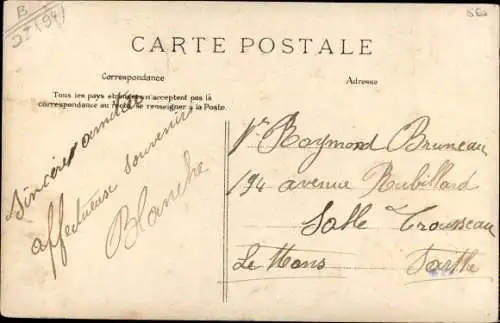 B
J-(94)
560
CARTE POSTALE
Correspondance
Adresse
Tous les pays étrangers n'acceptent pas la
correspondance au recto, se renseigner à la Poste.
Sincères amitiés
affectueuse souvenirs
Blanche
Raymond Bruneau
194 avenue Rubillard
Salle Trousseau
Le Mans Sarthe